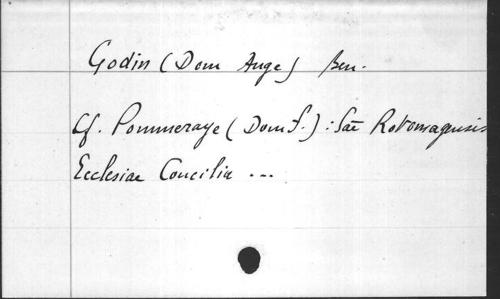 Godin (Dom Ange) Ben.
Cf. Pommeraye (Dom F.) : Sae Rotomagensis
Ecclesiae Concilia ...